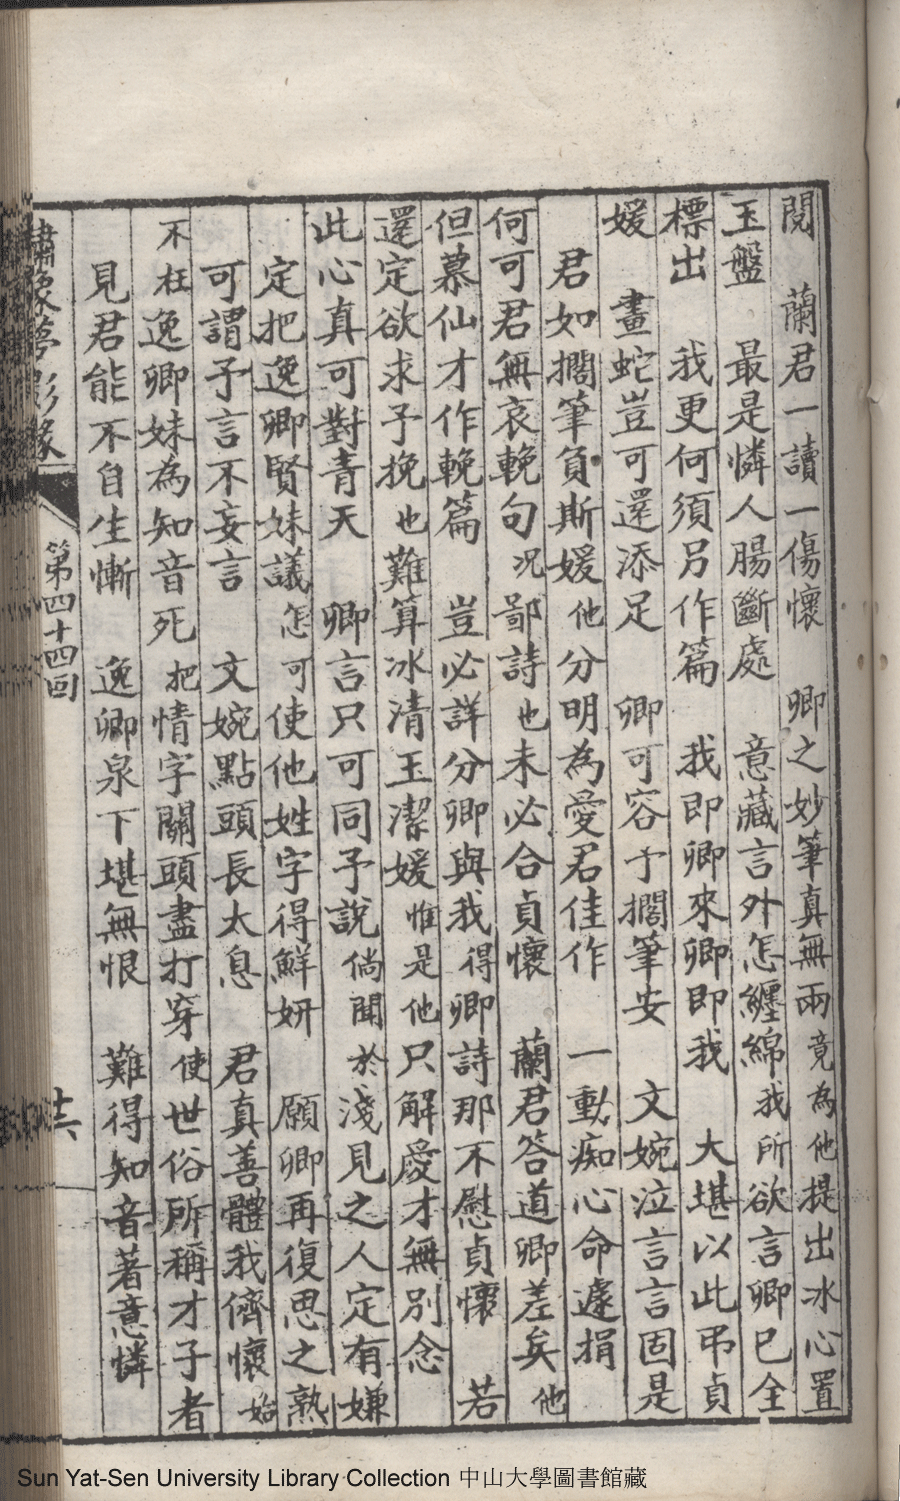 閱 蘭君一讀一傷懷 卿之妙筆真無兩竟為他提出冰心置
玉盤 最是憐人腸斷處 意藏言外怎纏綿我所欲言卿已全
標出 我更何須另作篇 我即卿來卿即我 大堪以此弔貞
媛 畫蛇豈可還添足 卿可容予擱筆安 文婉泣言言固是
君如擱筆負斯媛他分明為愛君佳作 一動痴心命遽捐
何可君無哀輓句況鄙詩也未必合貞懷 蘭君答道卿差矣他
但慕仙才作輓篇 豈必詳分卿與我得卿詩那不慰貞懷 若
還定欲求予挽也難算冰清玉潔媛惟是他只解愛才無別念
此心真可對青天 卿言只可同予說倘聞於淺見之人定有嫌
定把逸卿賢妹議怎可使他姓字得鮮妍 願卿再復思之熟
可謂予言不妄言 文婉點頭長太息 君真善體我儕懷始
不枉逸卿妹為知音死把情字關頭盡打穿使世俗所稱才子者
見君能不自生慚 逸卿泉下堪無恨 難得知音著意憐
繡像夢影緣
第四十四回
十六
Sun Yat-Sen University Library Collection 中山大學圖書館藏